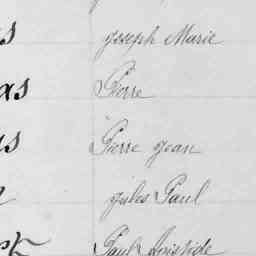 s Joseph Marie
as Pierre
us Pierre Jean
Jules Paul
Paul Aristide